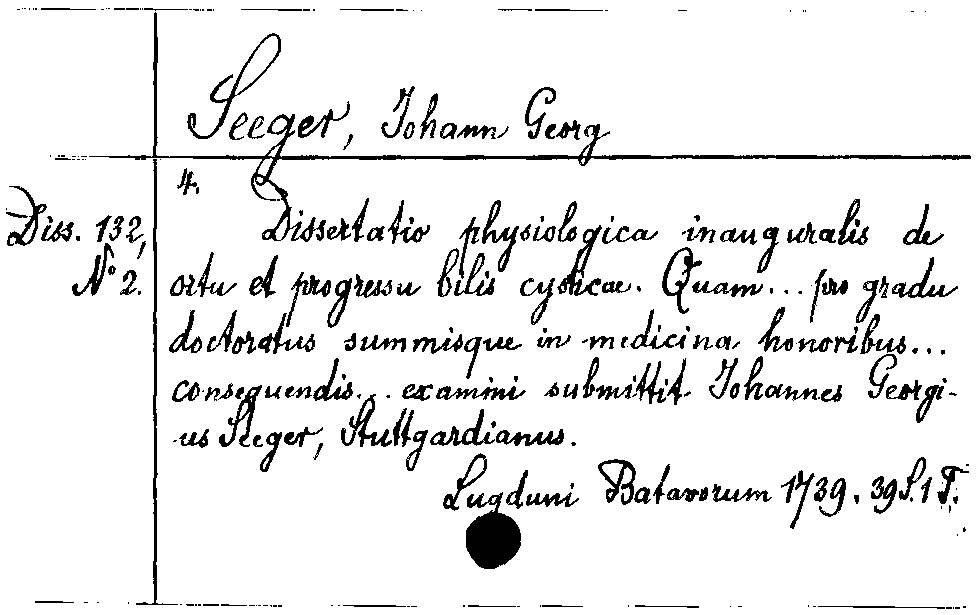 Seeger, Johann Georg
4.
Diss. 132,
No 2.
Dissertatio physiologica inauguralis de
ortu et progressu bilis cysticae. Quam... pro gradu
doctoratus summisque in medicina honoribus...
consequendis... examini submittit Johannes Georgi-
us Seeger, Stuttgardianus.
Lugduni Batavorum 1739. 39 S. 1 T.